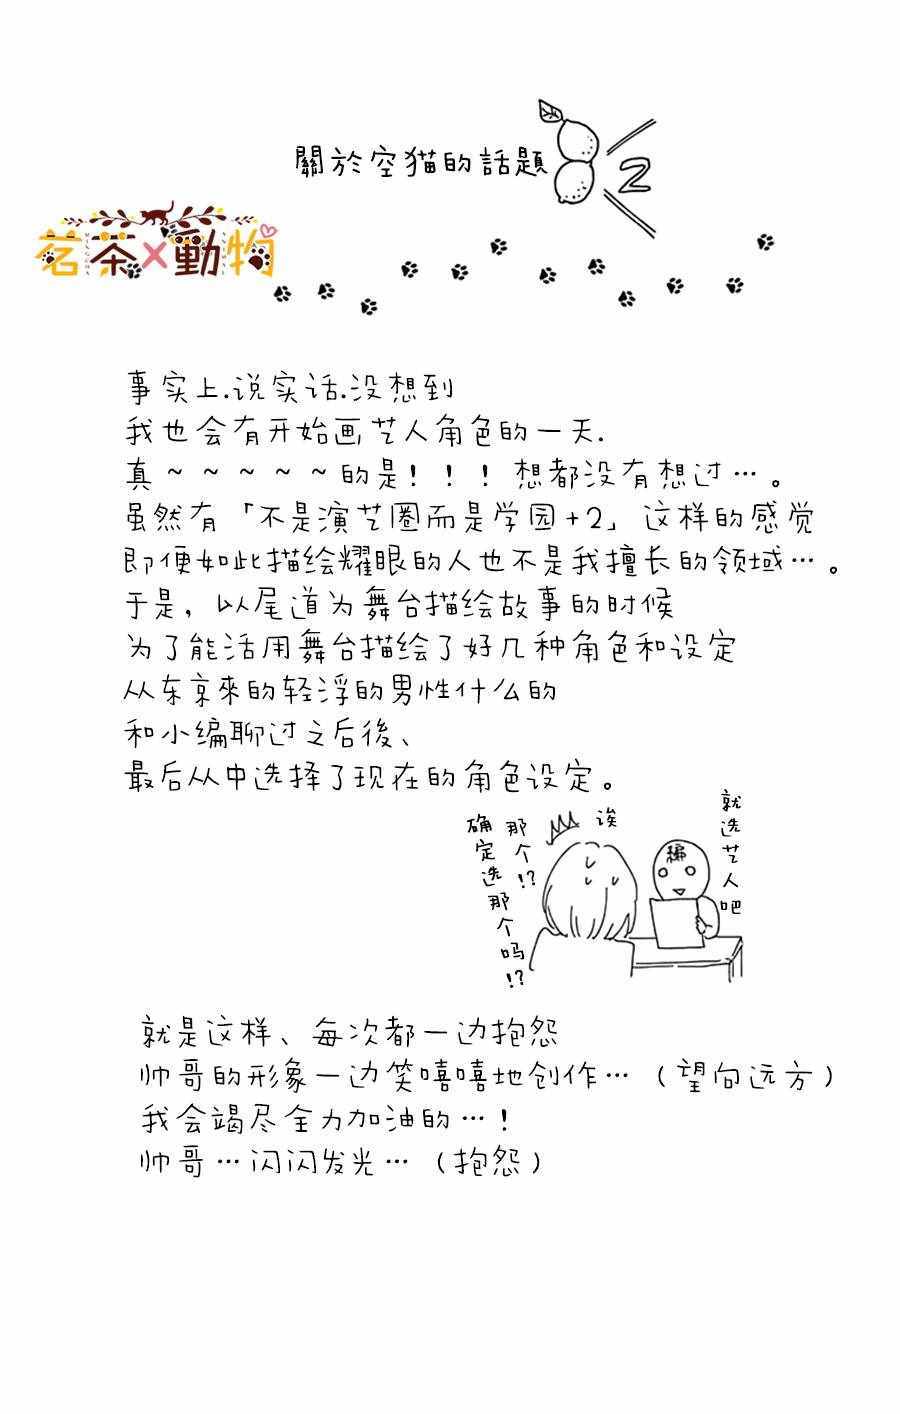 關於空猫的話題
2
茗茶×動物
事实上.说实话.没想到
我也会有开始画艺人角色的一天.
真~~~~~的是!!!想都没有想过…。
虽然有「不是演艺圈而是学园+2」这样的感觉
即便如此描绘耀眼的人也不是我擅长的领域…。
于是,以尾道为舞台描绘故事的时候
为了能活用舞台描绘了好几种角色和设定
从东京來的轻浮的男性什么的
和小编聊过之后後、
最后从中选择了现在的角色设定。
就选艺人吧
编
诶
那个!?
确定选那个吗!?
就是这样、每次都一边抱怨
帅哥的形象一边笑嘻嘻地创作…(望向远方)
我会竭尽全力加油的…!
帅哥…闪闪发光…(抱怨)